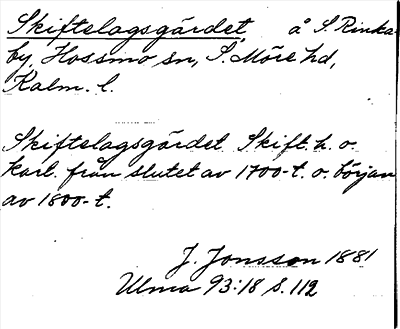 Skiftelagsgärdet, å S. Rinka-
by, Hossmo sn, S. Möre hd,
Kalm. l.
Skiftelagsgärdet Skift. h. o.
karl. från slutet av 1700-t. o. början
av 1800-t.
J. Jonsson 1881
Ulma 93:18 S. 112